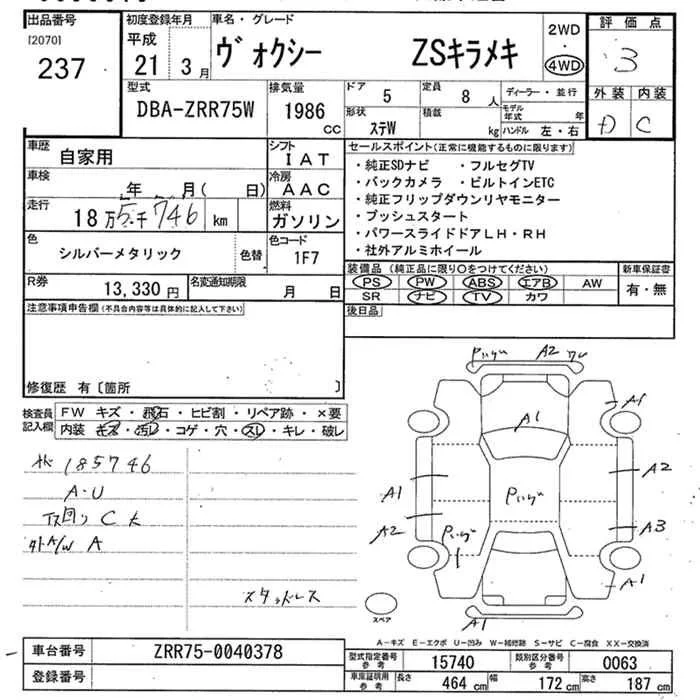 出品番号
[2070]
237
初度登録年月
平成
21 3月
車名・グレード
ヴォクシー ZSキラメキ
2WD
・
4WD
評価点
3
型式
DBA-ZRR75W
排気量
1986
CC
ドア
5
定員
8人
形状
ステW
積載
kg
ディーラー・並行
モデル年式 年
ハンドル 左・右
外装 内装
D C
車歴
自家用
シフト
IAT
車検
年 月( 日)
冷房
AAC
走行
18万5千746 km
燃料
ガソリン
色
シルバーメタリック
色替
色コード
1F7
R券
13,330円
名変通知期限
月 日
セールスポイント(正常に機能するものに限ります)
・純正SDナビ ・フルセグTV
・バックカメラ ・ビルトインETC
・純正フリップダウンリヤモニター
・プッシュスタート
・パワースライドドアLH・RH
・社外アルミホイール
装備品(純正品に限り○をつけてください)
PS PW ABS エアB AW
SR ナビ TV カワ
新車保証書
有・無
後日品
注意事項申告欄(不具合内容等は具体的に記入して下さい)
修復歴 有〔箇所 〕
検査員記入欄
FW キズ・飛石・ヒビ割・リペア跡・×要
内装 キズ・汚レ・コゲ・穴・スレ・キレ・破レ
185746
A・U
下回り C 大
外A/W A
スタッドレス
A2
A1
A1
A1
A2
A2
A3
A1
A1
スペア
A-キズ E-エクボ U-凹み W-補修跡 S-サビ C-腐食 XX-交換済
車台番号
ZRR75-0040378
登録番号
型式指定番号
参考
15740
類別区分番号
参考
0063
車庫証明用
参考
長さ 464cm
幅 172cm
高さ 187cm